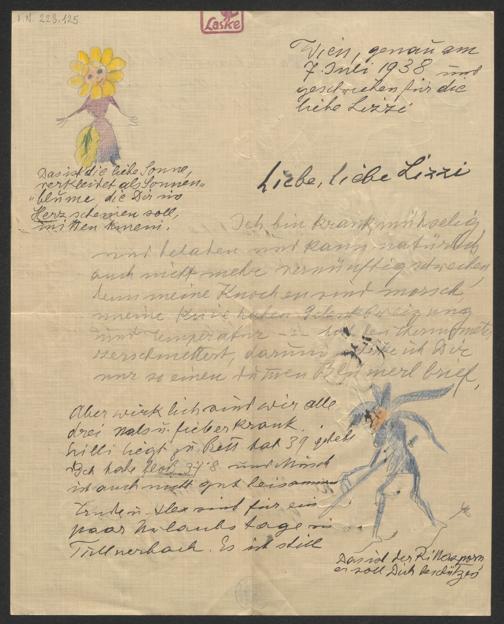 I.N. 223.125
Laske
Wien, genau am
7. Juli 1938 und
geschrieben für die
liebe Lizzi
Das ist die liebe Sonne,
verkleidet als Sonnen-
blume die Dir ins
Herz scheinen soll,
mitten hinein.
Liebe, liebe Lizzi
Ich bin krank mühselig
und beladen und kann natürlich
auch nicht mehr vernünftig schreiben,
denn meine Knochen sind morsch
meine haben
und Temperatur hat den Thermometer
zerschmettert, darum ich Dir
nur so einen Blumerl brief,
Aber wirklich sind wir alle
drei hals u. fieberkrank.
liegt zu Bett hat 39
Ich habe bloß 37 8 und
ist auch nicht gut beisammen
Trude u. sind für ein
paar Urlaubstage in
Tullnerbach. Es ist still
Das ist der Rittersporn
er soll Dich beschützen